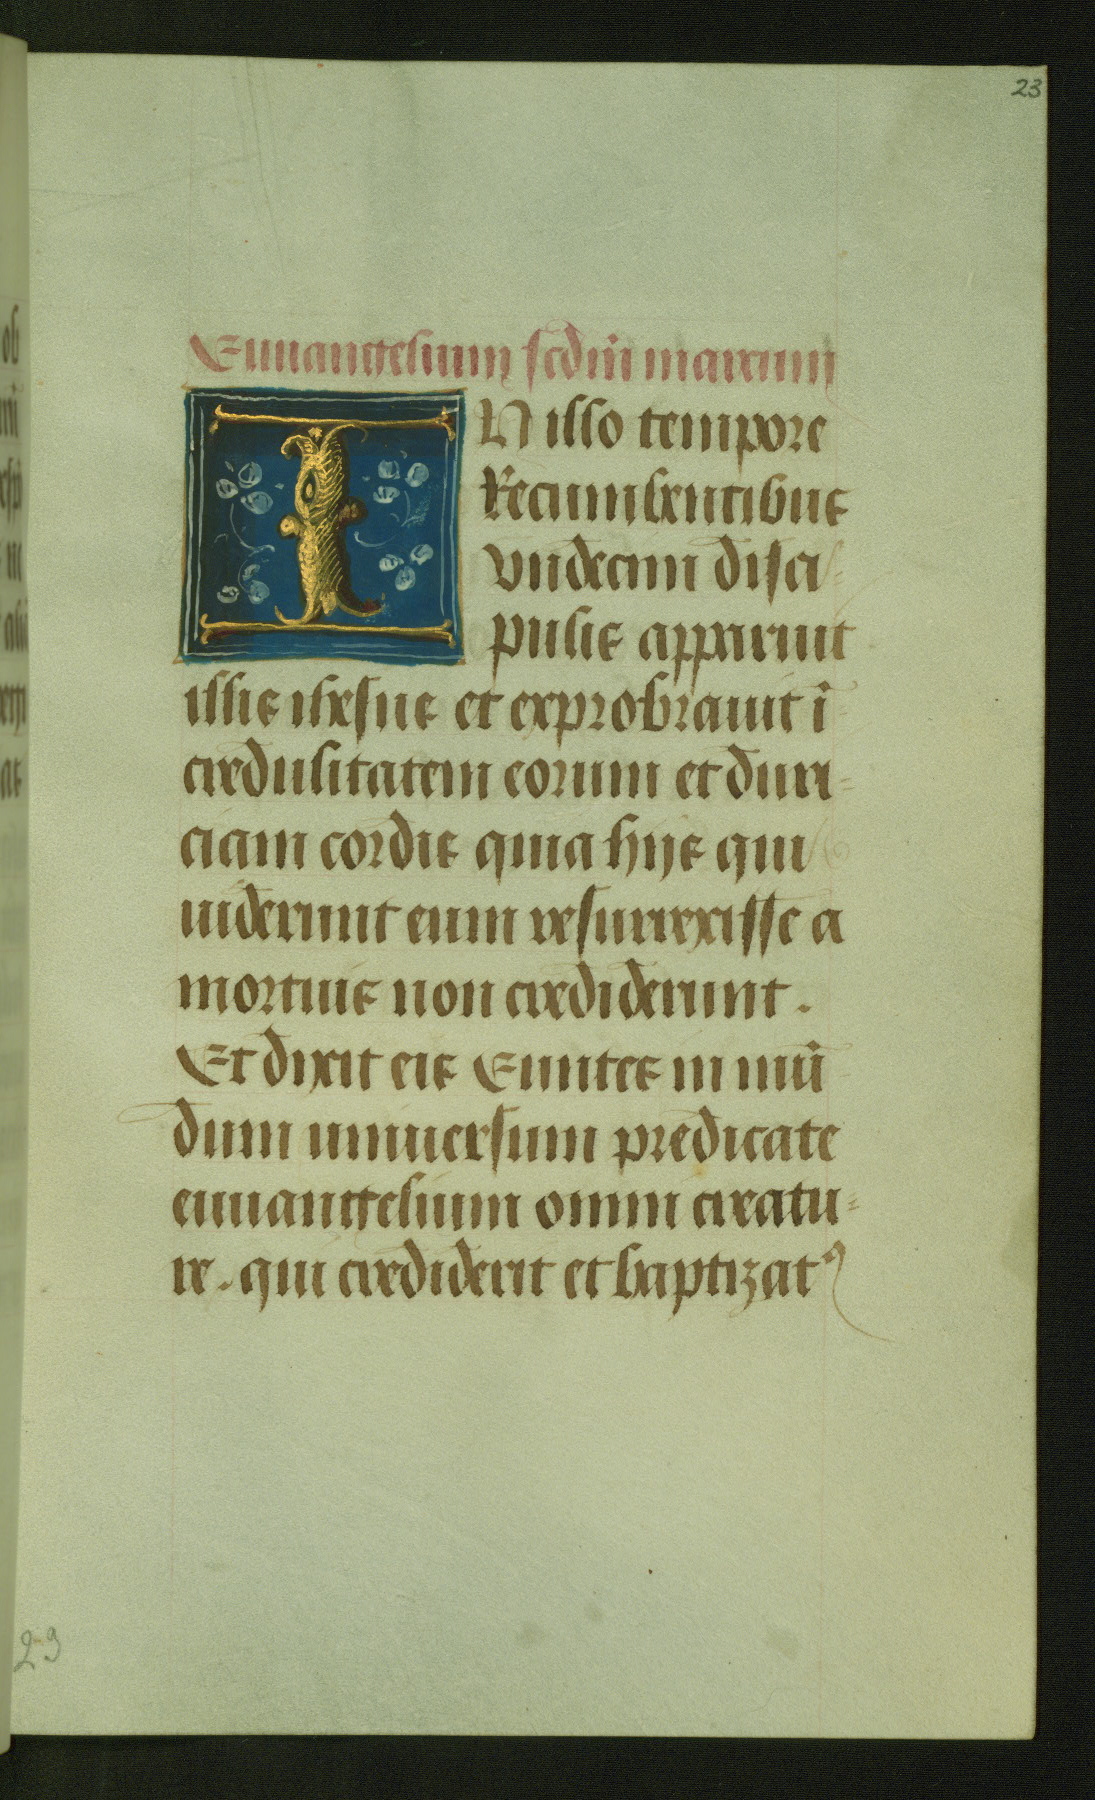 23
Euuangelium scdm̄ marcum
IN illo tempore
Recumbentibus
vndecim disci-
pulis apparuit
illis ihesus et exprobrauit ī-
credulitatem eorum et duri-
ciam cordis quia hijs qui
uiderunt eum resurrexisse a
mortuis non crediderunt.
Et dixit eis Euntes in mū-
dum uniuersum predicate
euuangelium omni creatu-
re. qui crediderit et baptizatꝰ
29